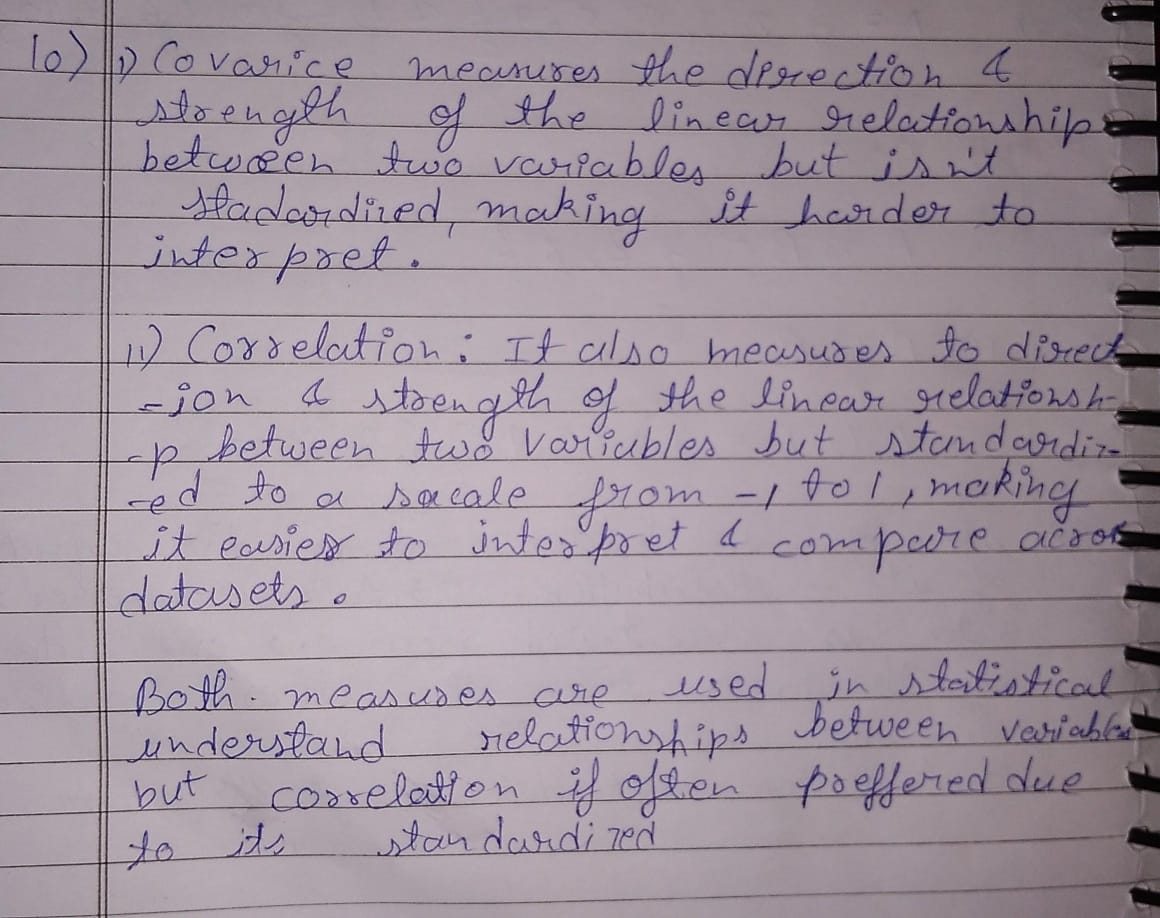 10) i) Covarice measures the direction &
strength of the linear relationship
between two variables but isn't
stadardized, making it harder to
interpret.
ii) Correlation: It also measures to direct
-ion & strength of the linear relationsh-
-p between two variables but standardiz-
-ed to a sacale from -1 to 1, making
it easier to interpret & compare across
datasets.
Both. measures are used in statistical
understand relationships between variables
but correlation if often preffered due
to its standardized